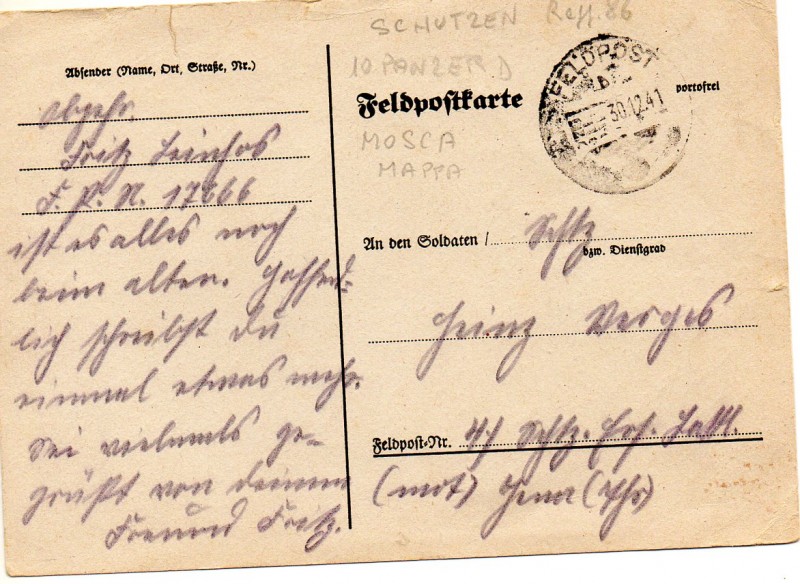 SCHUTZEN Regg. 86
10 PANZER D
MOSCA
MAPPA
Absender (Name, Ort, Straße, Nr.)
Fritz Leinhos
F. P. N. 17866
ist es alles noch
beim alten. Hoffent-
lich schreibst du
einmal etwas mehr.
Sei vielmals ge-
grüßt von deinem
Freund Fritz.
Feldpostkarte
FELDPOST
30.12.41
portofrei
An den Soldaten / Schtz
bzw. Dienstgrad
Heinz Verges
Feldpost-Nr. 4/ Schtz. Ers. Batl.
(mot) Jena (Thr)